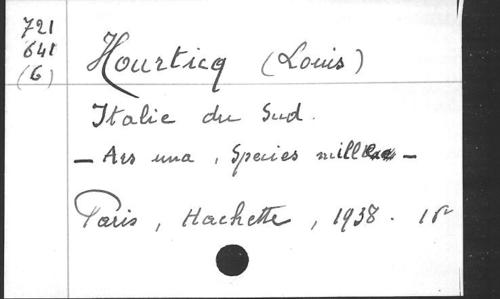 721
641
(6)
Hourticq (Louis)
Italie du Sud.
— Ars una, Species mille —
Paris, Hachette, 1938. in